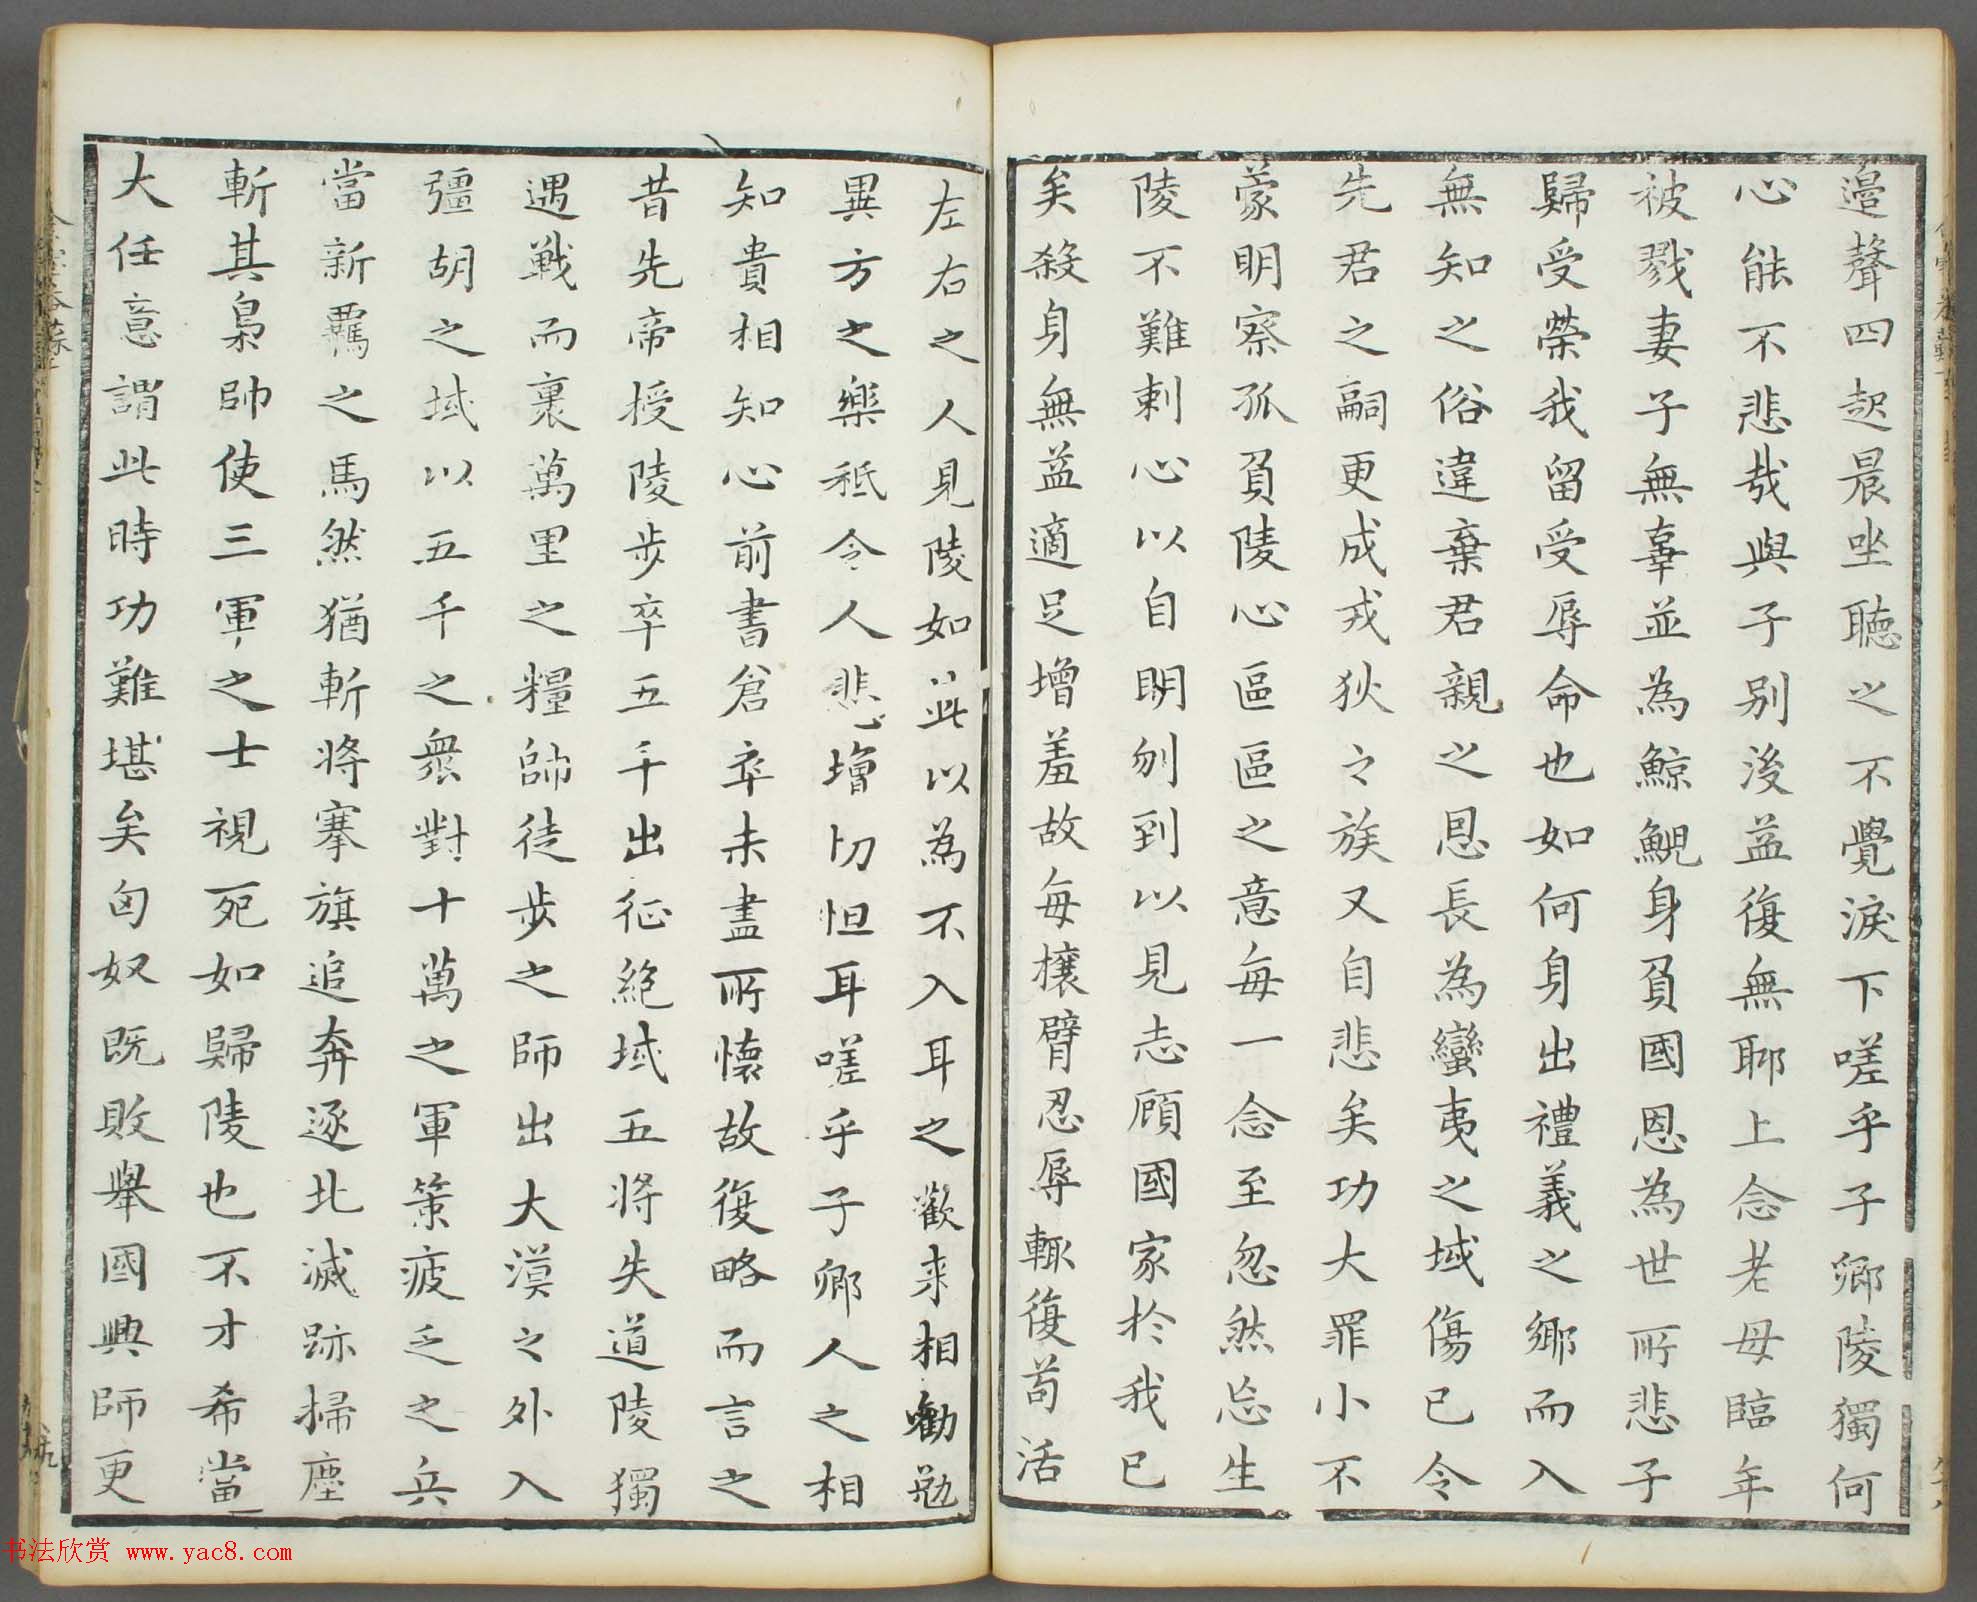 邉聲四起晨坐聽之不覺淚下嗟乎子卿陵獨何
心能不悲哉與子别後益復無聊上念老母臨年
被戮妻子無辜並為鯨鯢身負國恩為世所悲子
歸受榮我留受辱命也如何身出禮義之鄉而入
無知之俗違棄君親之恩長為蠻夷之域傷已令
先君之嗣更成戎狄之族又自悲矣功大罪小不
蒙明察孤負陵心區區之意每一念至忽然忘生
陵不難刺心以自明刎到以見志顧國家於我已
矣殺身無益適足增羞故每攘臂忍辱輙復苟活
左右之人見陵如此以為不入耳之歡来相勸勉
異方之樂秪令人悲增忉怛耳嗟乎子卿人之相
知貴相知心前書倉卒未盡所懷故復略而言之
昔先帝授陵步卒五千出征絶域五将失道陵獨
遇戰而裹萬里之糧帥徒步之師出大漠之外入
彊胡之域以五千之衆對十萬之軍策疲乏之兵
當新羈之馬然猶斬将搴旗追奔逐北滅跡掃塵
斬其梟帥使三軍之士視死如歸陵也不才希當
大任意謂此時功難堪矣匈奴既敗舉國興師更
书法欣赏 www.yac8.com